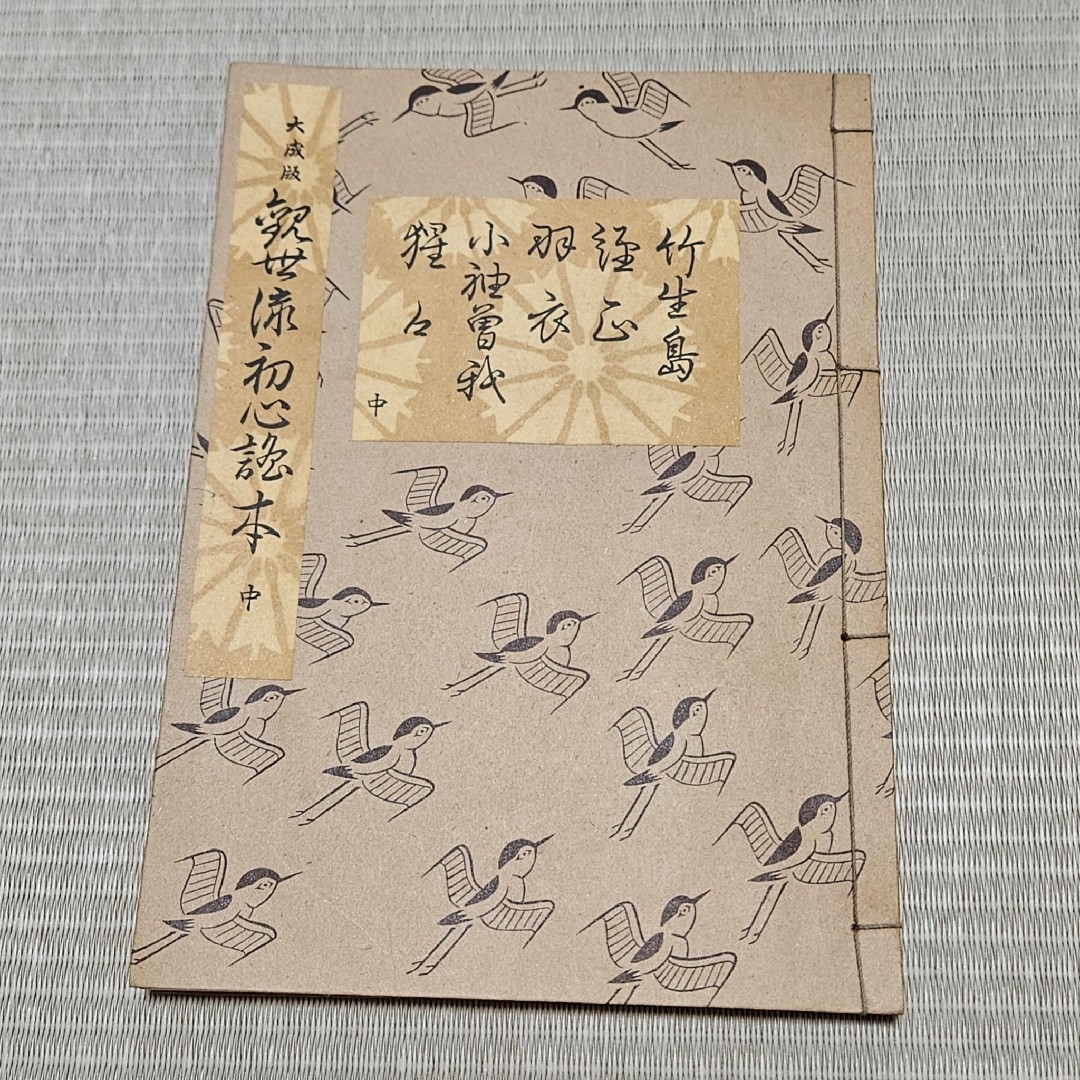 大成版
觀世流初心謠本 中
竹生島
経正
羽衣
小袖曽我
猩々
中